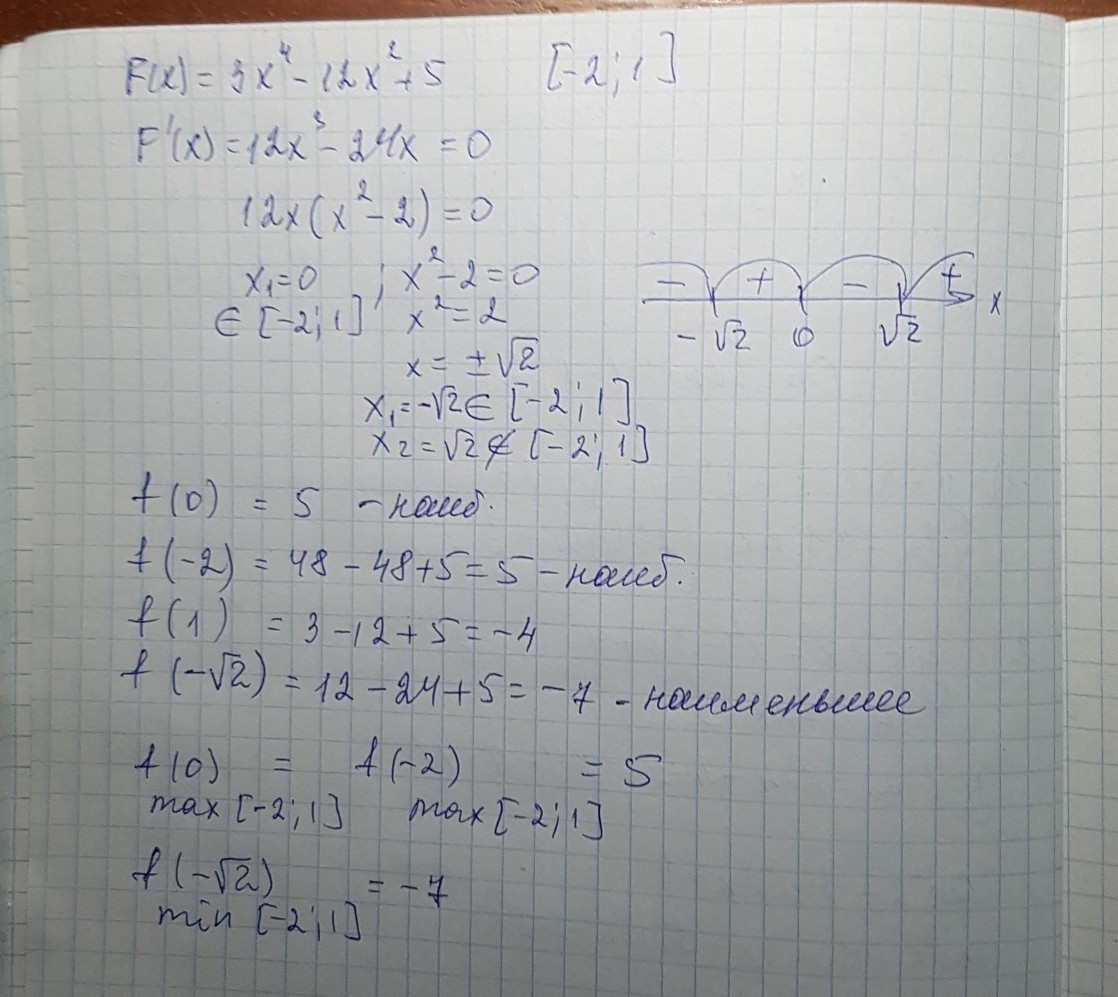 F(x) = 3x⁴ - 12x² + 5 [-2; 1]
F'(x) = 12x³ - 24x = 0
12x(x² - 2) = 0
x₁ = 0 ; x² - 2 = 0
∈ [-2; 1] x² = 2
x = ±√2
x₁ = -√2 ∈ [-2; 1]
x₂ = √2 ∉ [-2; 1]
- + - + x
-√2 0 √2
f(0) = 5 - наиб.
f(-2) = 48 - 48 + 5 = 5 - наиб.
f(1) = 3 - 12 + 5 = -4
f(-√2) = 12 - 24 + 5 = -7 - наименьшее
f(0) = f(-2) = 5
max [-2; 1] max [-2; 1]
f(-√2) = -7
min [-2; 1]